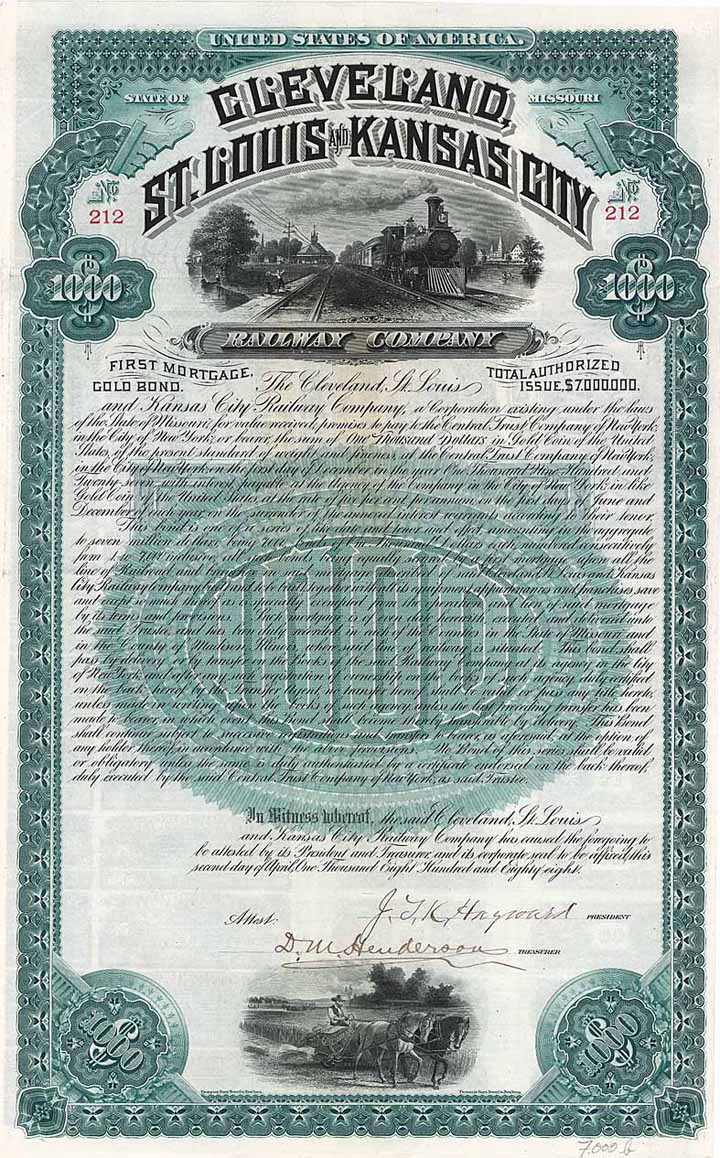 UNITED STATES OF AMERICA.
STATE OF MISSOURI
CLEVELAND,
ST. LOUIS AND KANSAS CITY
No 212
No 212
$1000
$1000
RAILWAY COMPANY
FIRST MORTGAGE, GOLD BOND.
TOTAL AUTHORIZED ISSUE, $7,000,000.
The Cleveland, St. Louis
and Kansas City Railway Company, a Corporation existing under the laws
of the State of Missouri, for value received, promises to pay to the Central Trust Company of New York,
in the City of New York, or bearer, the sum of One Thousand Dollars in Gold Coin of the United
States, of the present standard of weight and fineness, at the Central Trust Company of New York,
in the City of New York, on the first day of December in the year One Thousand Nine Hundred and
Twenty with interest payable at the office of the Company in the City of New York, in like
Gold Coin of the United States, at the rate of per cent per annum, on the first days of June and
December of each year on the surrender of the annexed interest according to their tenor.
This bond is one of a series of like date and tenor and effect amounting in the aggregate
to seven million dollars, being seven thousand bonds of each, numbered consecutively
from 1 to 7000 inclusive, all of said bonds being equally secured by a first mortgage upon all the
line of Railroad and
City Railway Company together with its equipments, appurtenances and franchises save
and except so much thereof as is specially exempted from the operation of said mortgage
by its terms and provisions.
the said Trustee, and has been duly recorded in each of the Counties in the State of Missouri, and
in the County of in which said line of railway is situated. This bond shall
pass by delivery or by transfer on the books of the said Railway Company at its agency in the City
of New York, and after a registration of ownership on the books of said agency duly certified
on the back hereof, no transfer except hereof shall be valid or pass any title hereto,
unless made in writing upon the books of said agency unless the last preceding transfer has been
made to bearer, in which event this bond shall become transferable by delivery. This bond
shall continue subject to successive registrations and transfers to bearer, as aforesaid, at the option of
any holder hereof, in accordance with the above provisions. No Bond of this series shall be valid
or obligatory unless the same is duly authenticated by a certificate endorsed on the back thereof,
duly executed by the said Central Trust Company of New York, as said Trustee.
1000
In Witness whereof, the said Cleveland, St. Louis
and Kansas City Railway Company has caused the foregoing to
be attested by its President and Treasurer and its corporate seal to be affixed, this
second day of April, One Thousand Eight Hundred and Eighty eight.
J. T. K. Hayward PRESIDENT
Attest:
D. M. Henderson TREASURER
$1000
$1000
7.000 b